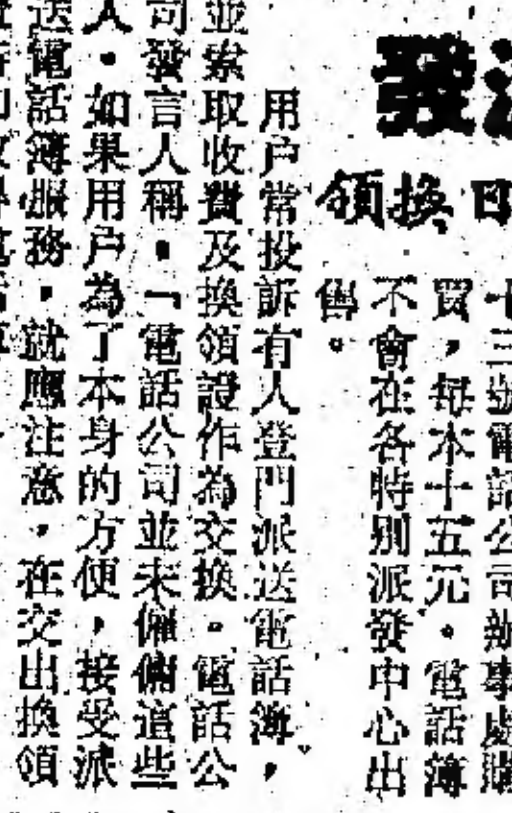 發
換領
十三號電話公司辦事處購
買，每本十五元。電話簿
不會在各特別派發中心出
售。
用户常投訴有人登門派送電話簿，
並索取收費及換領證作為交換。電話公
司發言人稱，「電話公司並未僱傭這些
人。如果用户為了本身的方便，接受派
送電話簿服務，就應注意，在交出換領